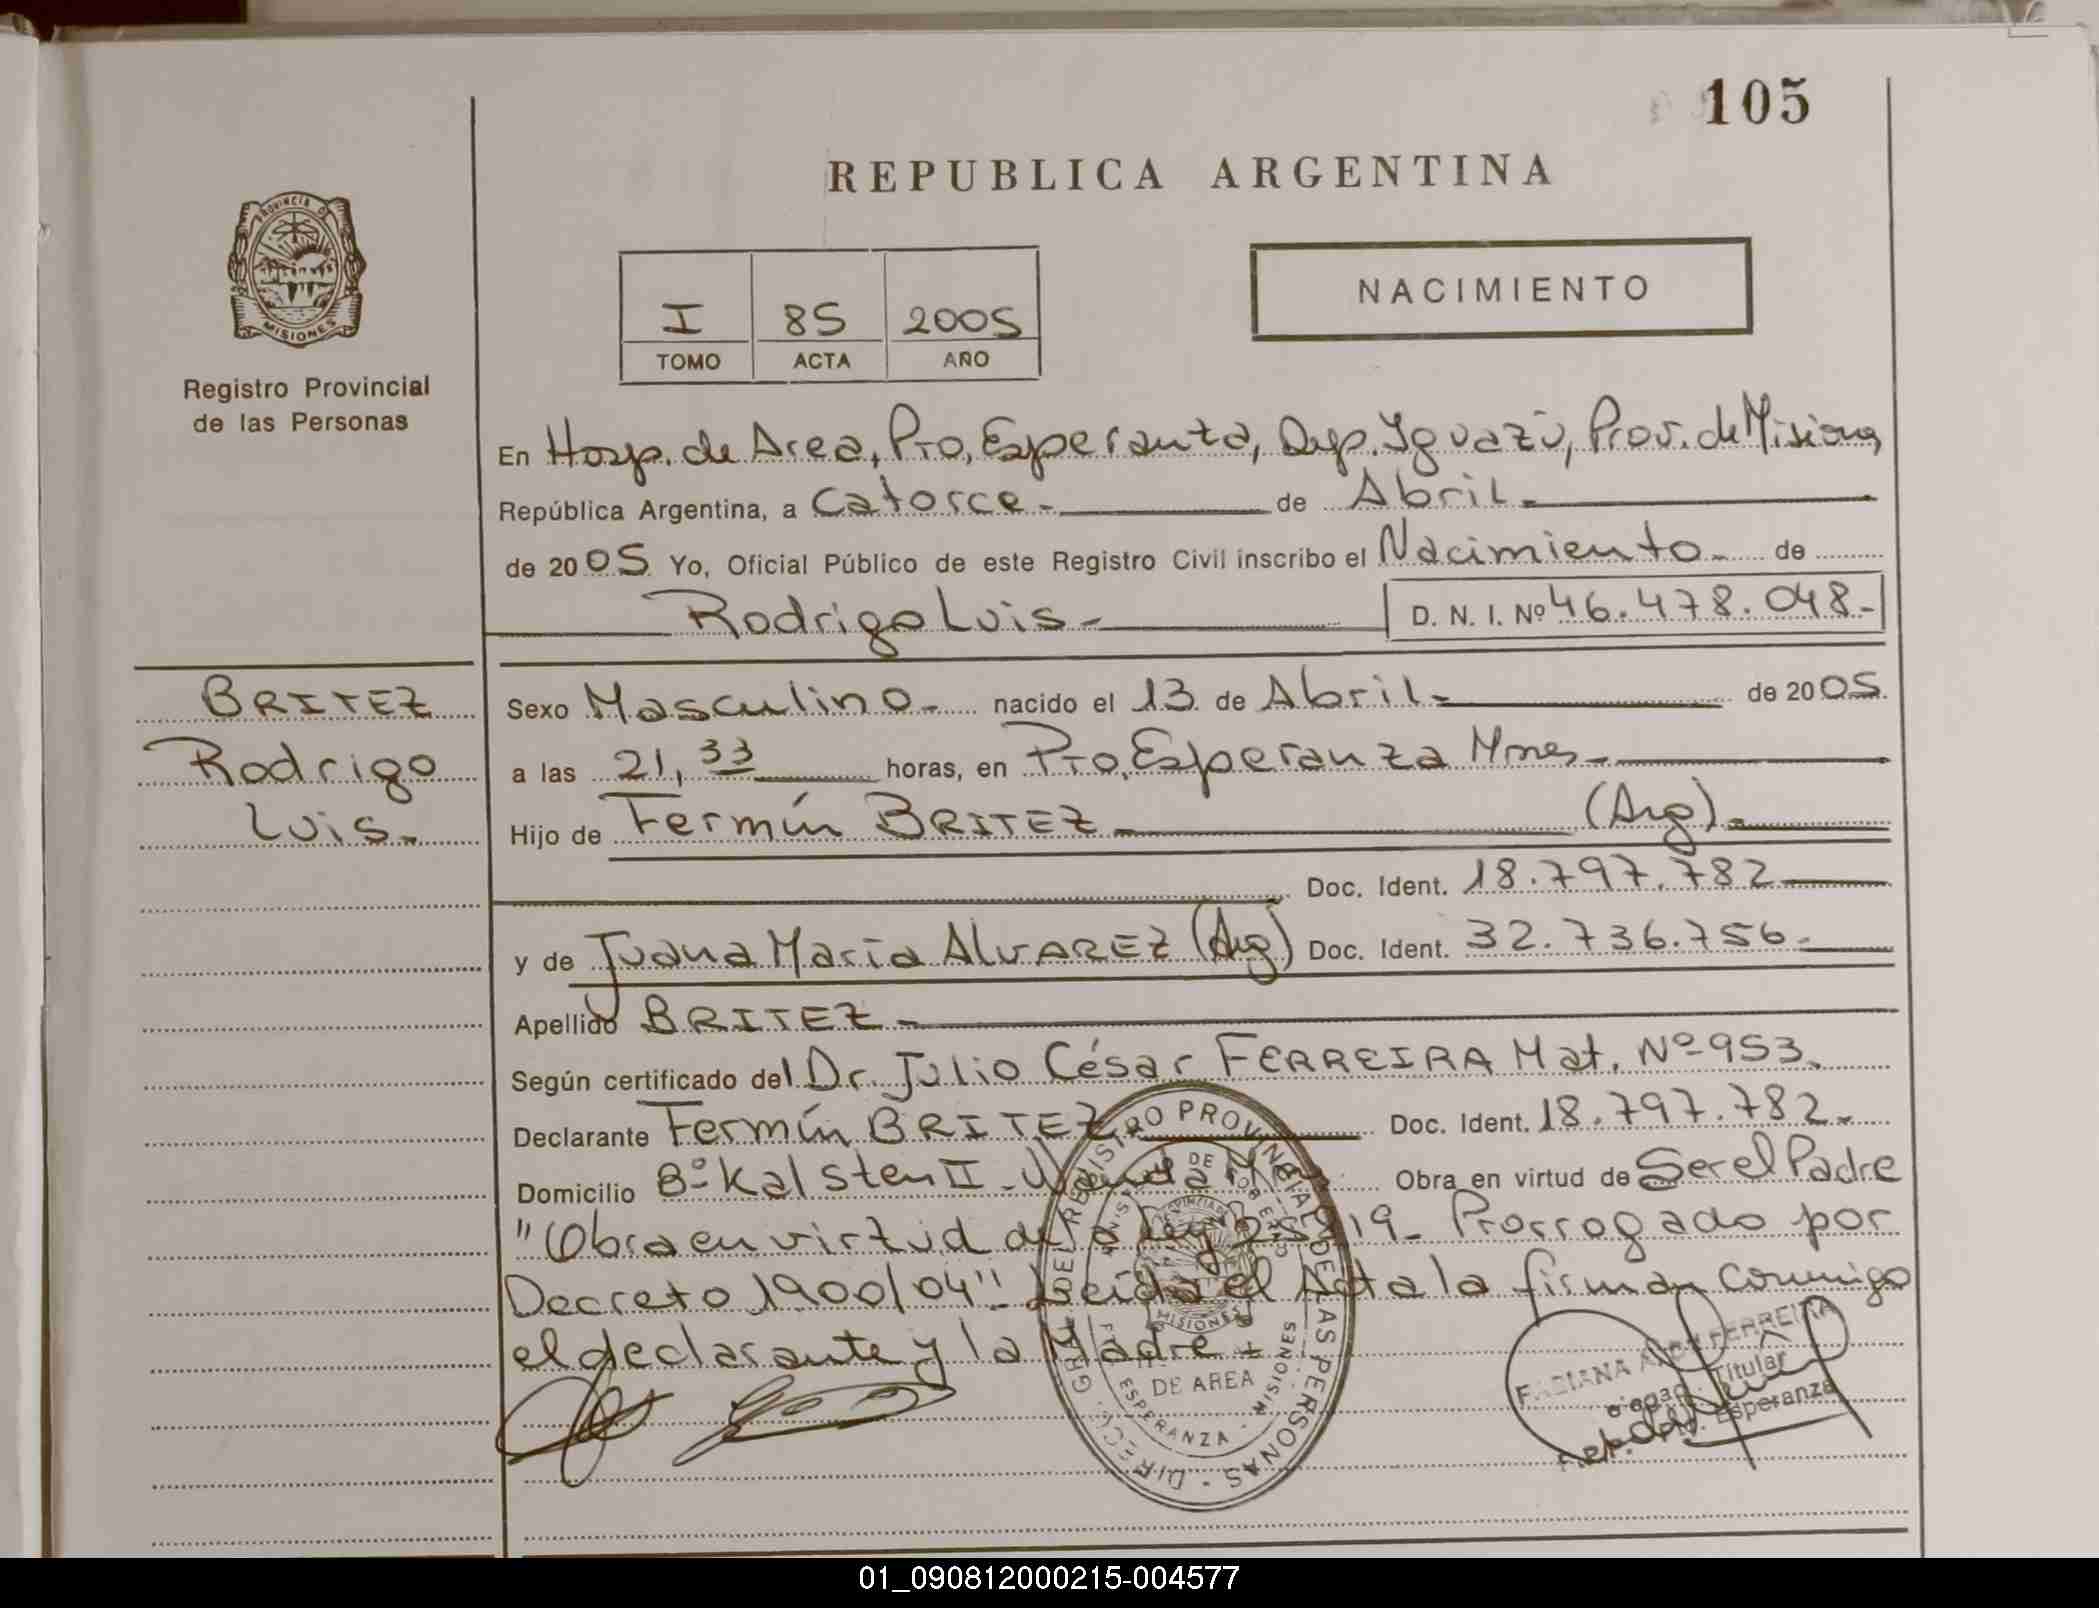 105
REPUBLICA ARGENTINA
PROVINCIA DE
MISIONES
Registro Provincial
de las Personas
I 85 2005
TOMO ACTA AÑO
NACIMIENTO
En Hosp. de Area, Pto, Esperanza, Dep. Iguazú, Prov. de Misiones
República Argentina, a Catorce.- de Abril.-
de 2005 Yo, Oficial Público de este Registro Civil inscribo el Nacimiento.- de
Rodrigo Luis.- D. N. I. Nº 46.478.048.-
BRITEZ
Rodrigo
Luis.-
Sexo Masculino.- nacido el 13 de Abril.- de 2005.
a las 21,33 horas, en Pto, Esperanza Mnes.-
Hijo de Fermín BRITEZ.- (Arg).-
Doc. Ident. 18.797.782
y de Juana María ALVAREZ (Arg) Doc. Ident. 32.736.756.-
Apellido BRITEZ.-
Según certificado del Dr. Julio César FERREIRA Mat. Nº 953.
Declarante Fermín BRITEZ.- Doc. Ident. 18.797.782.-
Domicilio Bº Kalsten II - Wanda Obra en virtud de Ser el Padre
"Obra en virtud de la Ley 25819- Prorrogado por
Decreto 1900/04". Leída el Acta la firman conmigo
el declarante y la Madre.-
DIRECC. GRAL DEL REGISTRO PROVINCIAL DE LAS PERSONAS
DE AREA
ESPERANZA - MISIONES
FERREIRA
Titular
Pto. Esperanza
01_090812000215-004577